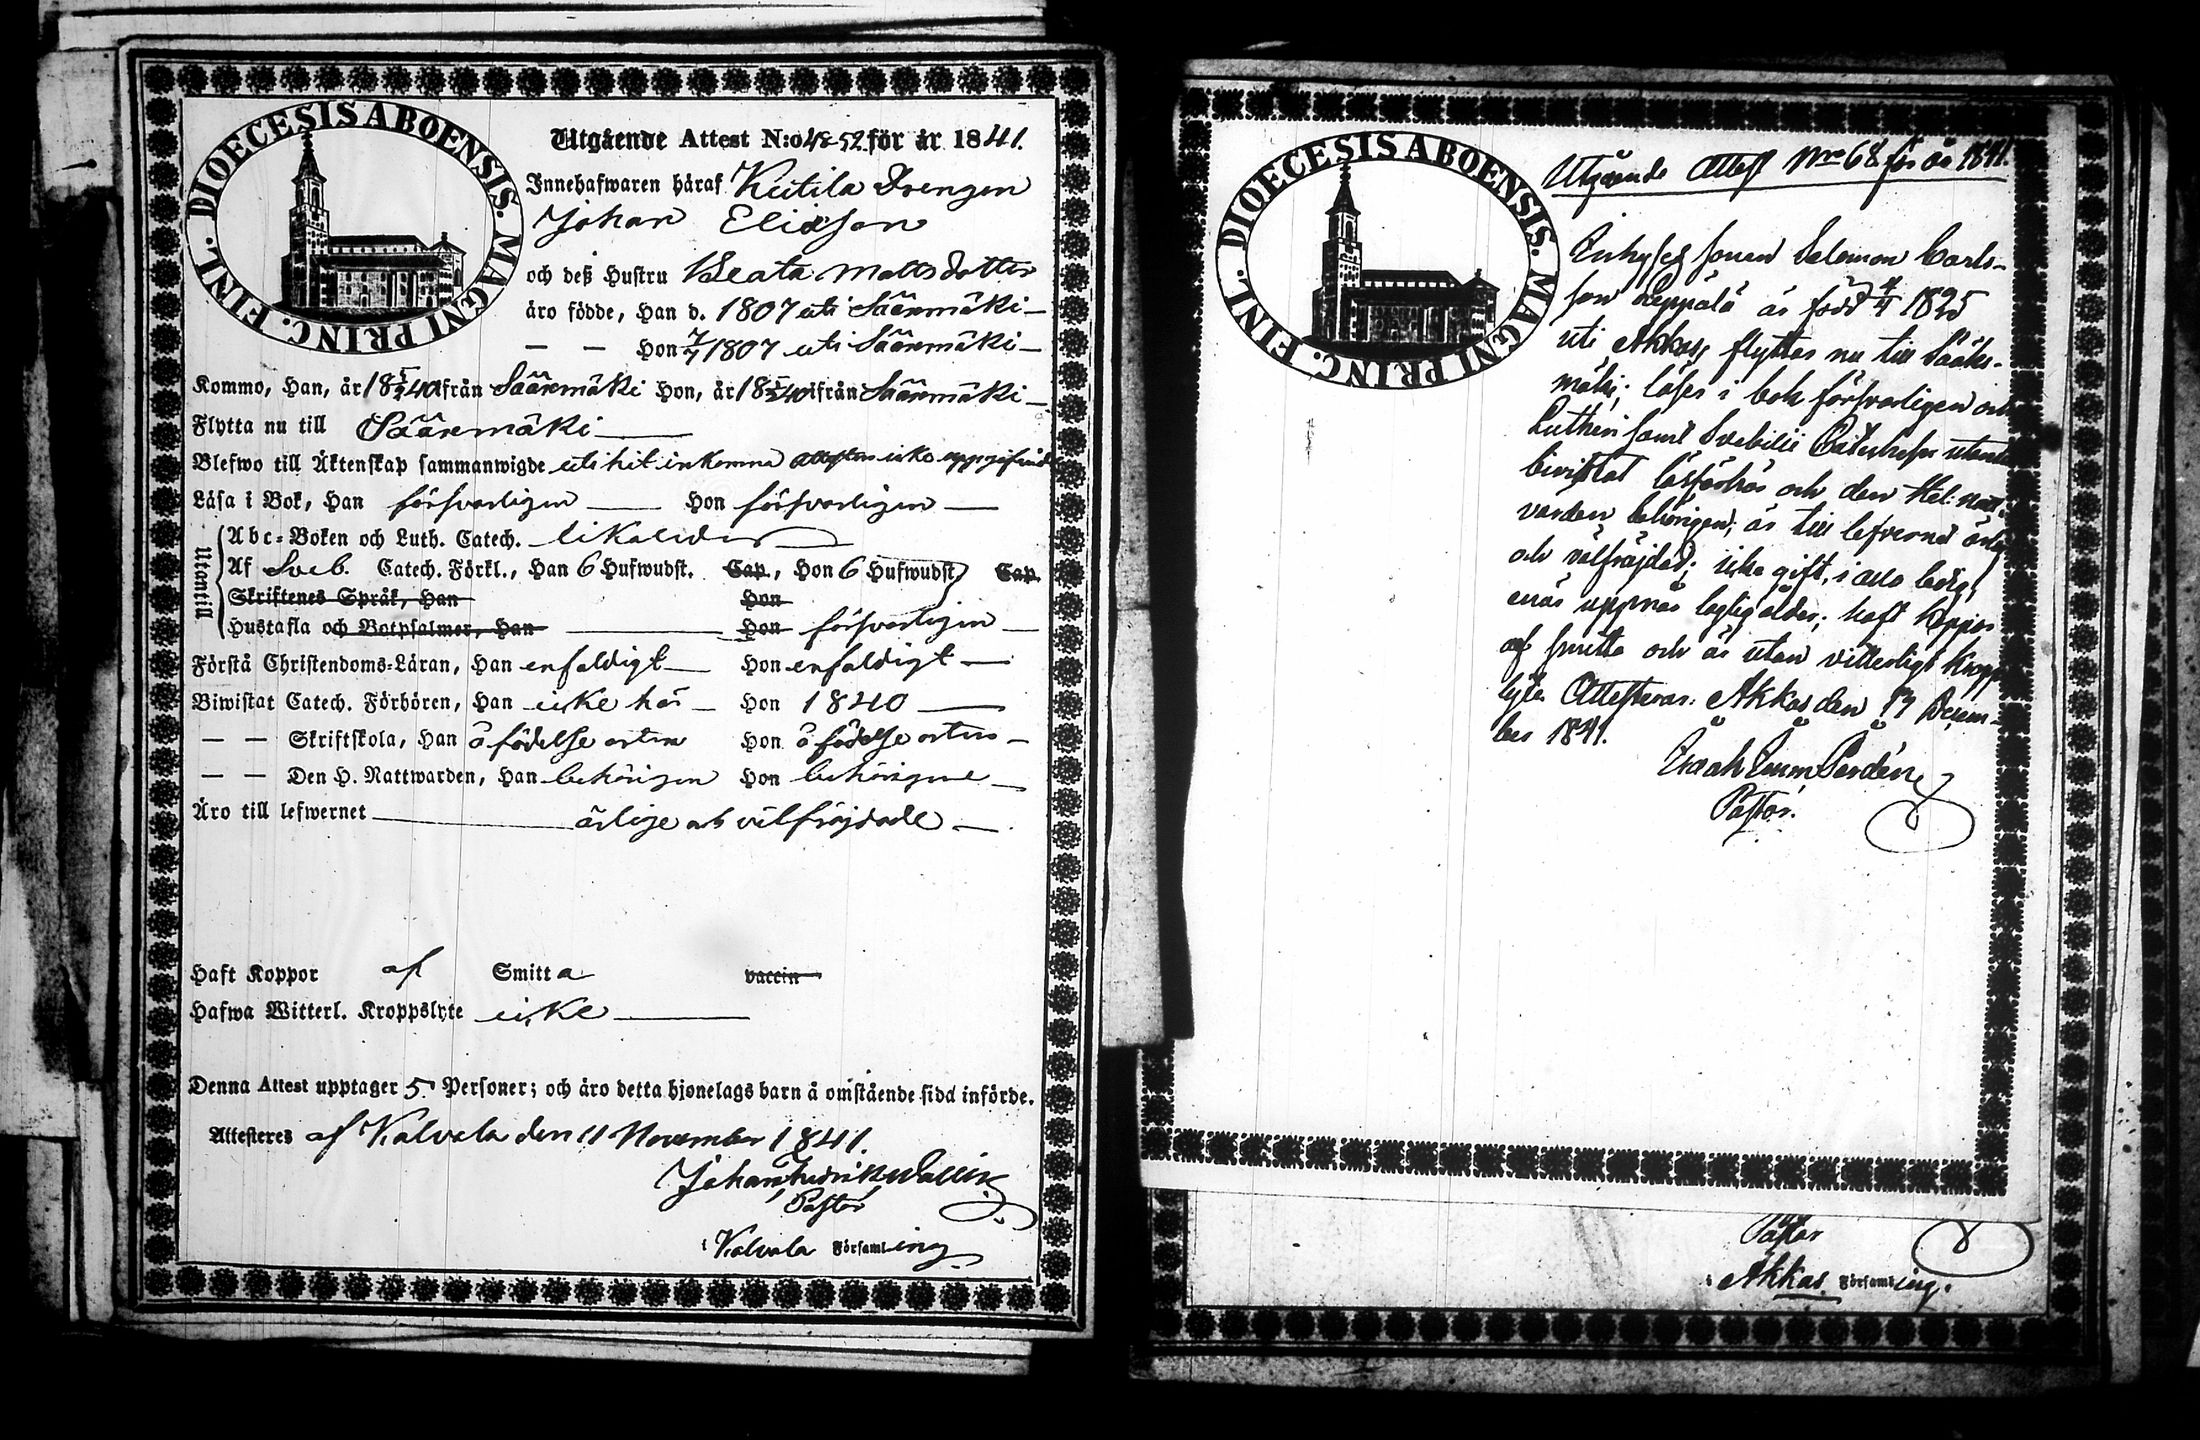 DIOECESIS ABOENSIS. MAGNI PRINC. FINL.
Utgående Attest N:o 48-52 för år 1841.
Innehafwaren häraf Kutila Drengen
Johan Eliasson
och deß Hustru Beata Mattsdotter
äro födde, Han d. 1807 uti Säärmäki
— — Hon 7/7 1807 uti Säärmäki
Kommo, Han, år 18 5/3 40 ifrån Säärmäki Hon, år 18 5/3 40 ifrån Säärmäki
Flytta nu till Säärmäki
Blefwo till Äktenskap sammanwigde uti hit inkomna attesten icke
Läsa i Bok, Han försvarligen Hon försvarligen
Utantill
Abc-Boken och Luth. Catech. likaledes
Af Sveb. Catech. Förkl., Han 6 Hufwudst. Cap., Hon 6 Hufwudst. Cap.
Skriftenes Språk, Han Hon
Hustafla och Botpsalmer, Han Hon försvarligen
Förstå Christendoms-Läran, Han enfaldigt Hon enfaldigt
Biwistat Catech. Förhören, Han icke här Hon 1840
— — Skriftskola, Han å födelse orten Hon å födelse orten
— — Den H. Nattwarden, Han behörigen Hon behörigen
Äro till lefwernet ärlige och välfräjdade
Haft Koppor af Smitta vaccin
Hafwa Witterl. Kroppslyte icke
Denna Attest upptager 5 Personer; och äro detta hjonelags barn å omstående sida införde.
Attesteres af Kalvola den 11 November 1841.
Johan Fredrik Wallin
Pastor
i Kalvola Församl ing.
DIOECESIS ABOENSIS. MAGNI PRINC. FINL.
Utgående Attest Nro 68 för år 1841.
sonen Salomon Carls-
son Leppälä är född 4/4 1825
uti Akkas, flyttar nu till Sääks-
mäki; läser i bok försvarligen och
Luthers samt Svebilii Cateches utantill
bivistat läsförhör och den Hel: natt-
varden behörigen; är till lefvernet ärlig
och välfräjdad; icke gift, i allo ledig
enär uppnår laglig ålder; haft koppor
af smitta och är utan vitterligt kropps
lyte Attesteras. Akkas den 17 Decem-
ber 1841.
Pastor.
Pastor
i Akkas Församl ing.